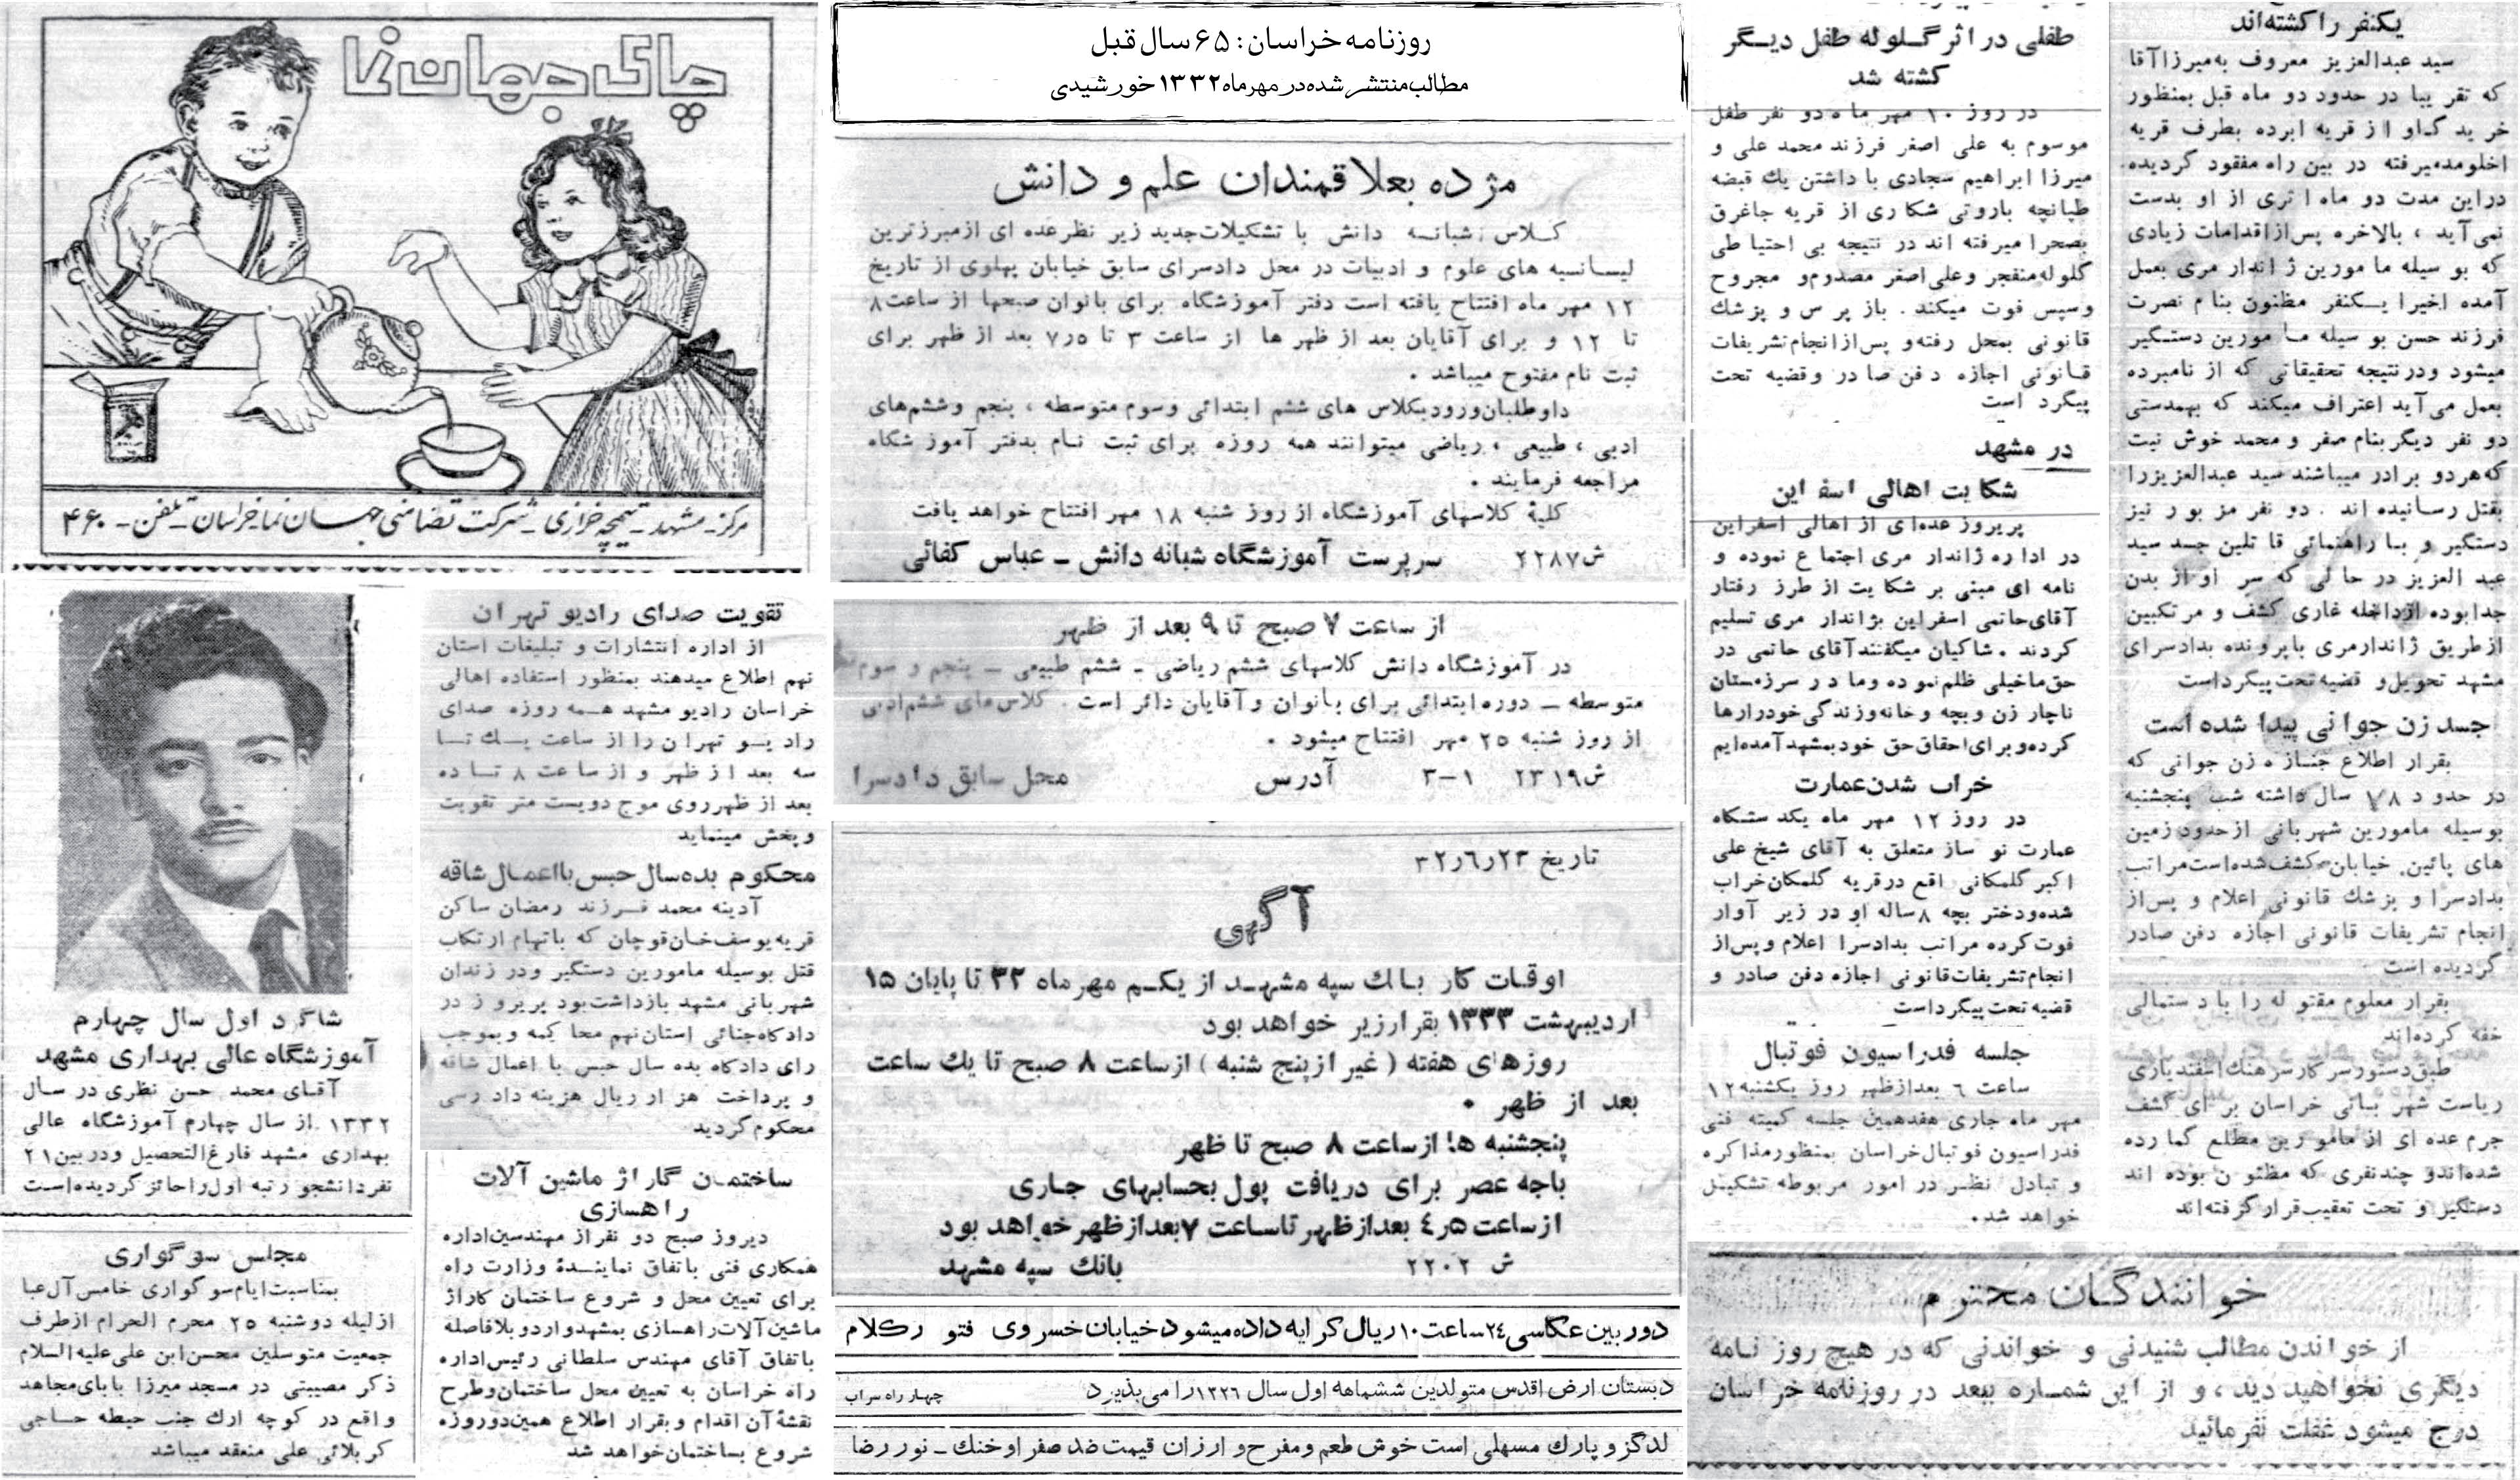 روزنامه خراسان: ۶۵ سال قبل
مطالب منتشر شده در مهرماه ۱۳۳۲ خورشیدی
یکنفر را کشته‌اند
سید عبدالعزیز معروف به میرزا آقا
که تقریبا در حدود دو ماه قبل بمنظور
خرید گاو از قریه ابرده بطرف قریه
اخلومد میرفته در بین راه مفقود گردیده.
در این مدت دو ماه اثری از او بدست
نمی‌آید ، بالاخره پس از اقدامات زیادی
که بوسیله مامورین ژاندارمری بعمل
آمده اخیرا یکنفر مظنون بنام نصرت
فرزند حسن بوسیله مامورین دستگیر
میشود و در نتیجه تحقیقاتی که از نامبرده
بعمل می‌آید اعتراف میکند که بهمدستی
دو نفر دیگر بنام صفر و محمد خوش نیت
که هر دو برادر میباشند سید عبدالعزیز را
بقتل رسانیده اند . دو نفر مزبور نیز
دستگیر و با راهنمائی قاتلین جسد سید
عبد العزیز در حالی که سر او از بدن
جدا بوده از داخله غاری کشف و مرتکبین
از طریق ژاندارمری با پرونده بدادسرای
مشهد تحویل و قضیه تحت پیگرد است
جسد زن جوانی پیدا شده است
بقرار اطلاع جنازه زن جوانی که
در حدود ۱۸ سال داشته شب پنجشنبه
بوسیله مامورین شهربانی از حدود زمین
های پائین خیابان کشف شده است مراتب
بدادسرا و پزشك قانونی اعلام و پس از
انجام تشریفات قانونی اجازه دفن صادر
گردیده است
بقرار معلوم مقتوله را با دستمالی
خفه کرده‌اند
طبق دستور سرکار سرهنك اسفندیاری
ریاست شهربانی خراسان برای کشف
جرم عده ای از مامورین مطلع گمارده
شده‌اند و چند نفری که مظنون بوده اند
دستگیر و تحت تعقیب قرار گرفته‌اند
طفلی در اثر گلوله طفل دیگر
کشته شد
در روز ۱۰ مهر ماه دو نفر طفل
موسوم به علی اصغر فرزند محمد علی و
میرزا ابراهیم سجادی با داشتن یك قبضه
طپانچه باروتی شکاری از قریه جاغرق
بصحرا میرفته اند در نتیجه بی احتیاطی
گلوله منفجر و علی اصغر مصدوم و مجروح
و سپس فوت میکند . باز پرس و پزشك
قانونی بمحل رفته و پس از انجام تشریفات
قانونی اجازه دفن صادر و قضیه تحت
پیگرد است
در مشهد
شکایت اهالی اسفراین
پریروز عده‌ای از اهالی اسفراین
در اداره ژاندارمری اجتماع نموده و
نامه ای مبنی بر شکایت از طرز رفتار
آقای حاتمی اسفراین بژاندارمری تسلیم
کردند . شاکیان میگفتند آقای حاتمی در
حق ما خیلی ظلم نموده و ما در سرزمستان
ناچار زن و بچه و خانه و زندگی خود را رها
کرده و برای احقاق حق خود بمشهد آمده‌ایم
خراب شدن عمارت
در روز ۱۲ مهر ماه یکدستگاه
عمارت نو ساز متعلق به آقای شیخ علی
اکبر گلمکانی اقع در قریه گلمکان خراب
شده و دختر بچه ۸ ساله او در زیر آوار
فوت کرده مراتب بدادسرا اعلام و پس از
انجام تشریفات قانونی اجازه دفن صادر و
قضیه تحت پیگرد است
جلسه فدراسیون فوتبال
ساعت ٦ بعدازظهر روز یکشنبه ۱۲
مهر ماه جاری هفدهمین جلسه کمیته فنی
فدراسیون فوتبال خراسان بمنظور مذاکره
و تبادل نظر در امور مربوطه تشکیل
خواهد شد.
خوانندگان محترم
از خواندن مطالب شنیدنی و خواندنی که در هیچ روز نامه
دیگری نخواهید دید ، و از این شماره ببعد در روزنامه خراسان
درج میشود غفلت نفرمائید
مژده بعلاقمندان علم و دانش
کلاس شبانه دانش با تشکیلات جدید زیر نظر عده ای از مبرزترین
لیسانسیه های علوم و ادبیات در محل دادسرای سابق خیابان پهلوی از تاریخ
۱۲ مهر ماه افتتاح یافته است دفتر آموزشگاه برای بانوان صبحها از ساعت ۸
تا ۱۲ و برای آقایان بعد از ظهر ها از ساعت ۳ تا ۷٫۵ بعد از ظهر برای
ثبت نام مفتوح میباشد .
داوطلبان ورود بکلاس های ششم ابتدائی و سوم متوسطه ، پنجم و ششم‌های
ادبی ، طبیعی ، ریاضی میتوانند همه روزه برای ثبت نام بدفتر آموزشگاه
مراجعه فرمایند .
کلیۀ کلاسهای آموزشگاه از روز شنبه ۱۸ مهر افتتاح خواهد یافت
ش ۲۲۸۷ سرپرست آموزشگاه شبانه دانش ـ عباس کفائی
از ساعت ۷ صبح تا ۹ بعد از ظهر
در آموزشگاه دانش کلاسهای ششم ریاضی ـ ششم طبیعی ـ پنجم و سوم
متوسطه ـ دوره ابتدائی برای بانوان و آقایان دائر است . کلاس‌های ششم ادبی
از روز شنبه ۲۵ مهر افتتاح میشود .
ش ۲۳۱۹ ۱-۳ آدرس محل سابق دادسرا
تاریخ ۲۳ر۶ر۳۲
آگهی
اوقات کار بانك سپه مشهد از یکم مهر ماه ۳۲ تا پایان ۱۵
اردیبهشت ۱۳۳۳ بقرار زیر خواهد بود
روزهای هفته ( غیر از پنج شنبه ) از ساعت ۸ صبح تا یك ساعت
بعد از ظهر .
پنجشنبه ها از ساعت ۸ صبح تا ظهر
باجه عصر برای دریافت پول بحسابهای جاری
از ساعت ٤٫۵ بعد از ظهر تا ساعت ۷ بعد از ظهر خواهد بود
ش ۲۲۰۲ بانك سپه مشهد
دوربین عکاسی ۲٤ ساعت ۱۰ ریال کرایه داده میشود خیابان خسروی فتو رکلام
دبستان ارض اقدس متولدین ششماهه اول سال ۱۳۲۶ را می پذیرد چهار راه سراب
لدگز و پارك مسهلی است خوش طعم و مفرح و ارزان قیمت ضد صفرا و خنك ـ نور رضا
چای جهان نما
مرکز ـ مشهد ـ تیمچه خرازی ـ شرکت تضامنی جهان نما خراسان ـ تلفن ـ ۴۶۰
تقویت صدای رادیو تهران
از اداره انتشارات و تبلیغات استان
نهم اطلاع میدهند بمنظور استفاده اهالی
خراسان رادیو مشهد همه روزه صدای
رادیو تهران را از ساعت یك تا
سه بعد از ظهر و از ساعت ۸ تا ده
بعد از ظهر روی موج دویست متر تقویت
و پخش مینماید
محکوم بده سال حبس با اعمال شاقه
آدینه محمد فرزند رمضان ساکن
قریه یوسف خان قوچان که باتهام ارتکاب
قتل بوسیله مامورین دستگیر و در زندان
شهربانی مشهد بازداشت بود پریروز در
دادگاه جنائی استان نهم محاکمه و بموجب
رای دادگاه بده سال حبس با اعمال شاقه
و پرداخت هزار ریال هزینه دادرسی
محکوم گردید
ساختمان گاراژ ماشین آلات
راهسازی
دیروز صبح دو نفر از مهندسین اداره
همکاری فنی باتفاق نمایندۀ وزارت راه
برای تعیین محل و شروع ساختمان کاراژ
ماشین آلات راهسازی بمشهد وارد و بلافاصله
باتفاق آقای مهندس سلطانی رئیس اداره
راه خراسان به تعیین محل ساختمان و طرح
نقشۀ آن اقدام و بقرار اطلاع همین دو روزه
شروع بساختمان خواهد شد
شاگرد اول سال چهارم
آموزشگاه عالی بهداری مشهد
آقای محمد حسن نظری در سال
۱۳۳۲ از سال چهارم آموزشگاه عالی
بهداری مشهد فارغ التحصیل و در بین ۲۱
نفر دانشجو رتبه اول را حائز گردیده است
مجلس سوگواری
بمناسبت ایام سوگواری خامس آل عبا
از لیله دوشنبه ۲۵ محرم الحرام از طرف
جمعیت متوسلین محسن ابن علی علیه السلام
ذکر مصیبتی در مسجد میرزا بابای مجاهد
واقع در کوچه ارك جنب حیطه حاجی
کربلائی علی منعقد میباشد